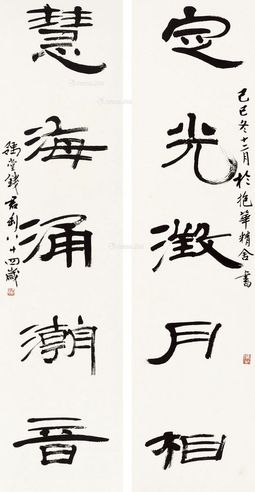 己巳冬十二月於抱華精舍書
定光澂月相
慧海涌潮音
豫堂錢君匋八十四歲